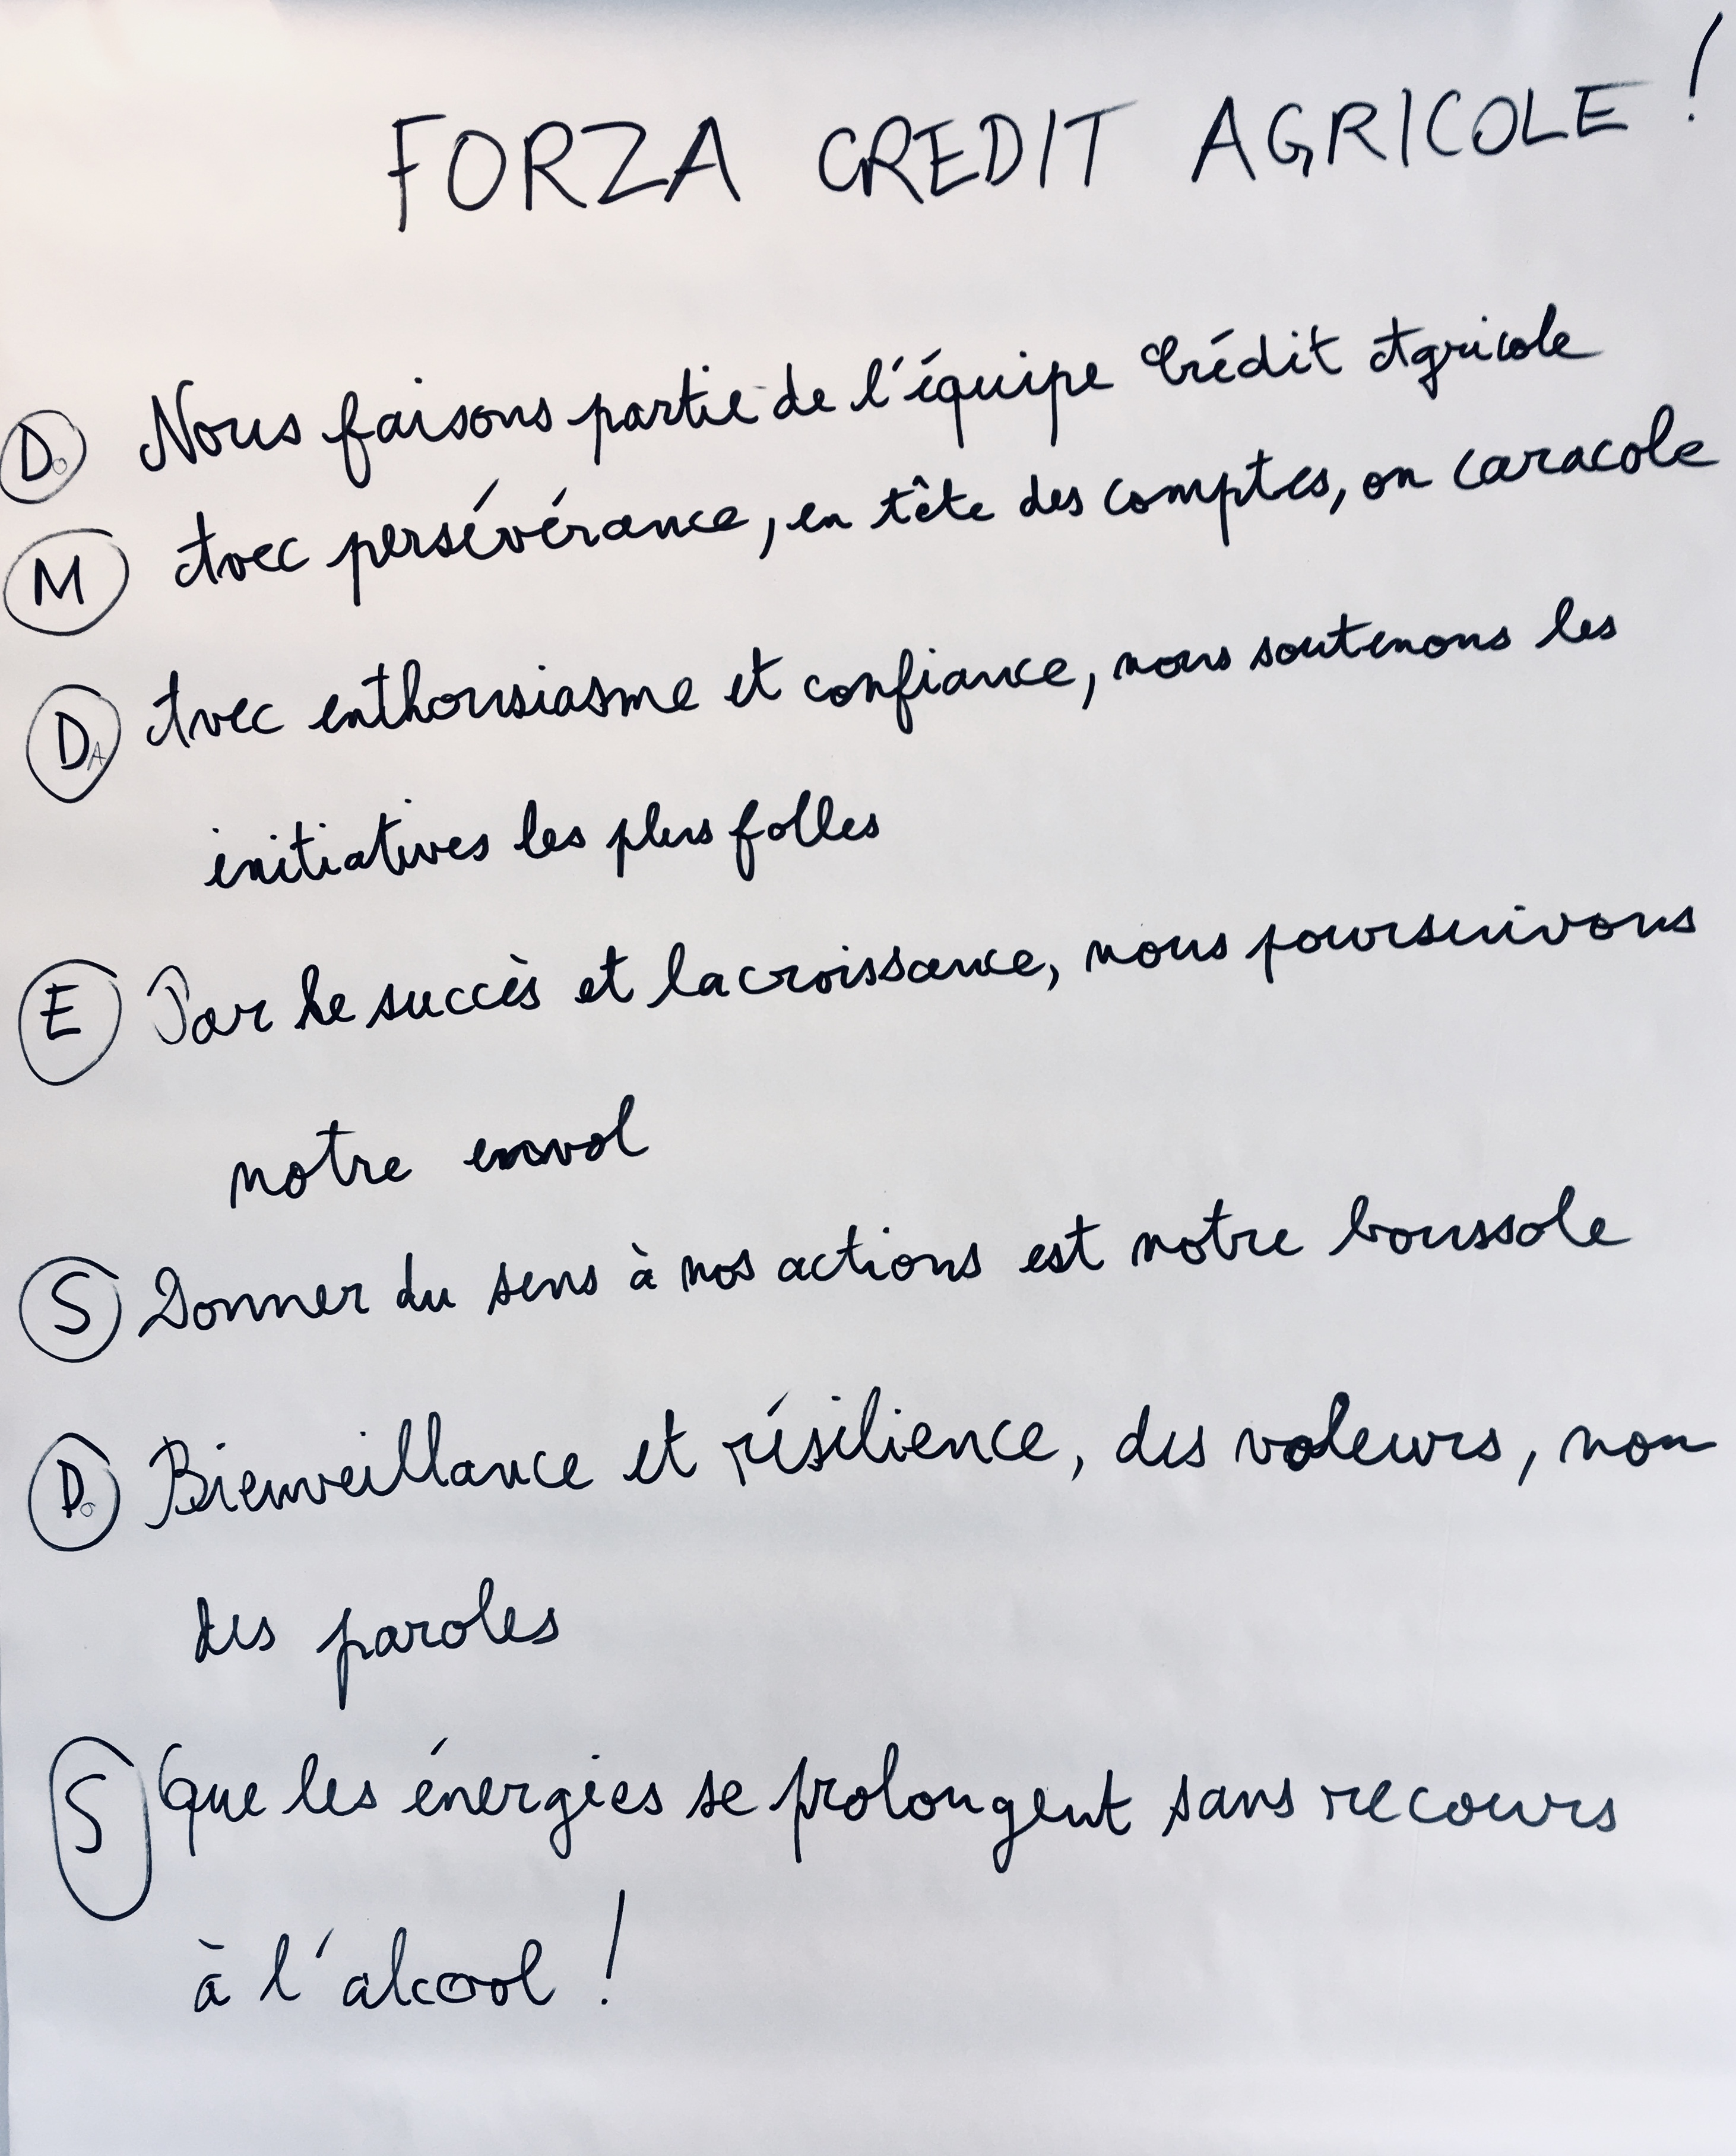 FORZA CREDIT AGRICOLE !
Do Nous faisons partie de l'équipe Crédit Agricole
M Avec persévérance, en tête des comptes, on caracole
DA Avec enthousiasme et confiance, nous soutenons les
initiatives les plus folles
E Par le succès et la croissance, nous poursuivons
notre envol
S Donner du sens à nos actions est notre boussole
Do Bienveillance et résilience, des valeurs, non
des paroles
S Que les énergies se prolongent sans recours
à l'alcool !